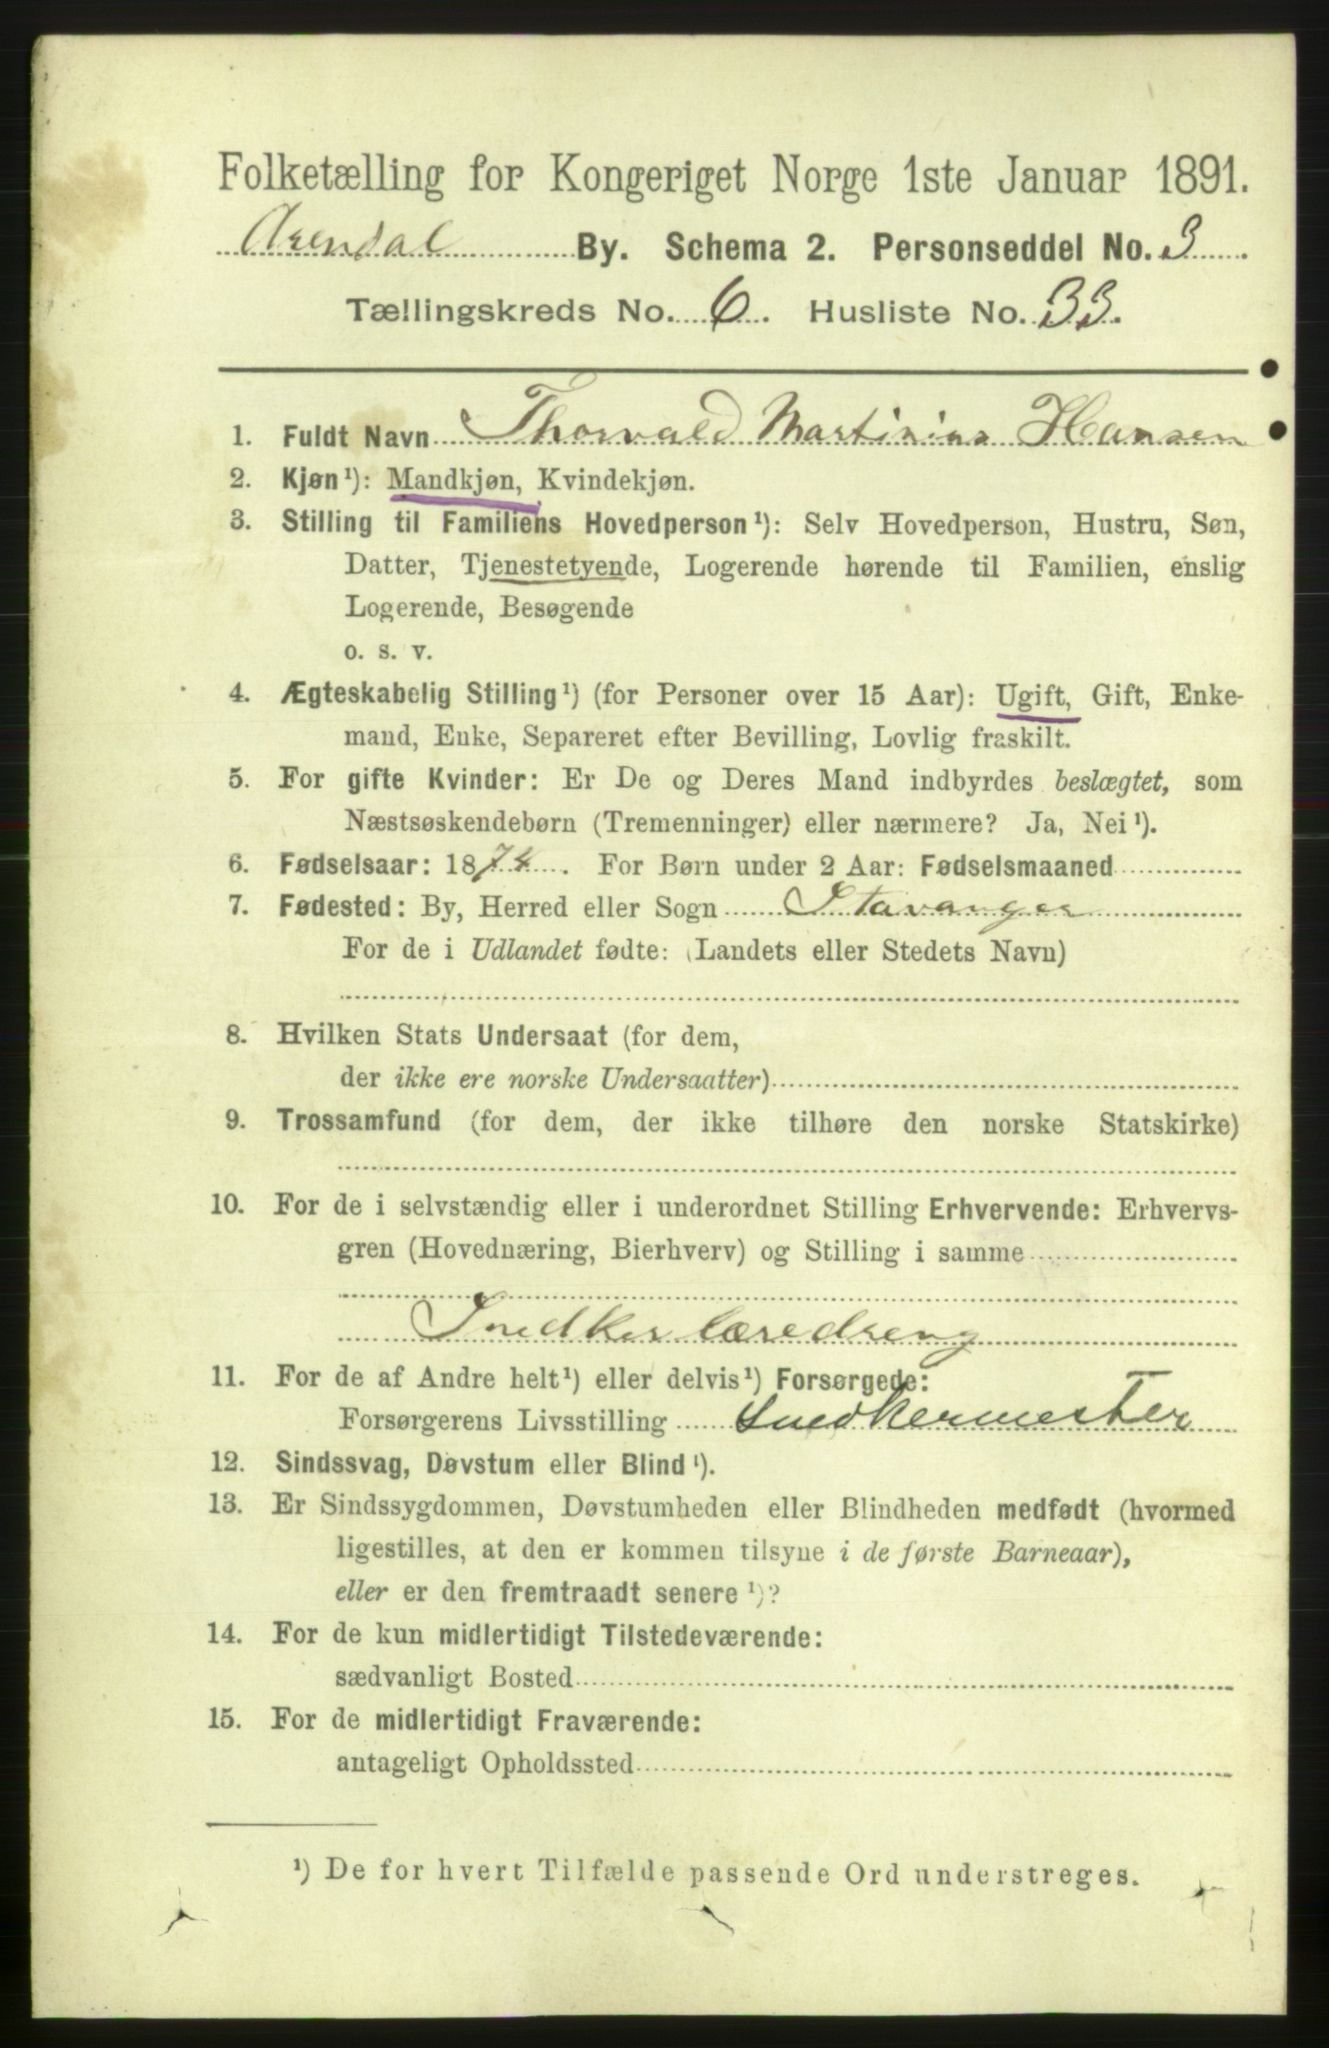 Folketælling for Kongeriget Norge 1ste Januar 1891.
Arendal By. Schema 2. Personseddel No. 3.
Tællingskreds No. 6. Husliste No. 33.
1. Fuldt Navn Thorvald Martinius Hansen
2. Kjøn¹): Mandkjøn, Kvindekjøn.
3. Stilling til Familiens Hovedperson¹): Selv Hovedperson, Hustru, Søn,
Datter, Tjenestetyende, Logerende hørende til Familien, enslig
Logerende, Besøgende
o. s. v.
4. Ægteskabelig Stilling¹) (for Personer over 15 Aar): Ugift, Gift, Enke-
mand, Enke, Separeret efter Bevilling, Lovlig fraskilt.
5. For gifte Kvinder: Er De og Deres Mand indbyrdes beslægtet, som
Næstsøskendebørn (Tremenninger) eller nærmere? Ja, Nei¹).
6. Fødselsaar: 1874. For Børn under 2 Aar: Fødselsmaaned
7. Fødested: By, Herred eller Sogn Stavanger
For de i Udlandet fødte: (Landets eller Stedets Navn)
8. Hvilken Stats Undersaat (for dem,
der ikke ere norske Undersaatter)
9. Trossamfund (for dem, der ikke tilhøre den norske Statskirke)
10. For de i selvstændig eller i underordnet Stilling Erhvervende: Erhvervs-
gren (Hovednæring, Bierhverv) og Stilling i samme
Snedker læredreng
11. For de af Andre helt¹) eller delvis¹) Forsørgede:
Forsørgerens Livsstilling Snedkermester
12. Sindssvag, Døvstum eller Blind¹).
13. Er Sindssygdommen, Døvstumheden eller Blindheden medfødt (hvormed
ligestilles, at den er kommen tilsyne i de første Barneaar),
eller er den fremtraadt senere¹)?
14. For de kun midlertidigt Tilstedeværende:
sædvanligt Bosted
15. For de midlertidigt Fraværende:
antageligt Opholdssted
¹) De for hvert Tilfælde passende Ord understreges.